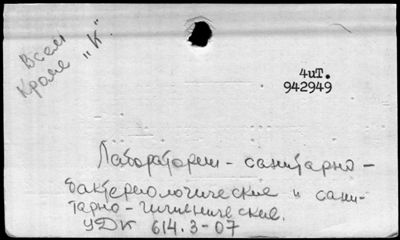 Всем
Кроме "К"
4ит.
942949
Лаборатории - санитарно -
бактериологические и сани-
тарно - гигиенические.
УДК 614.3-07